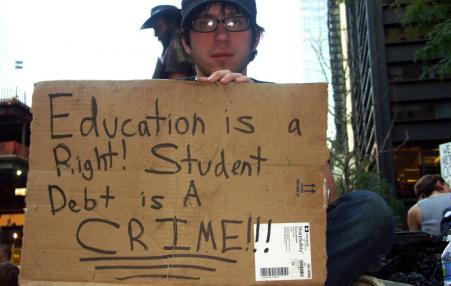 Education is a
Right! Student
Debt is A
CRIME!!!